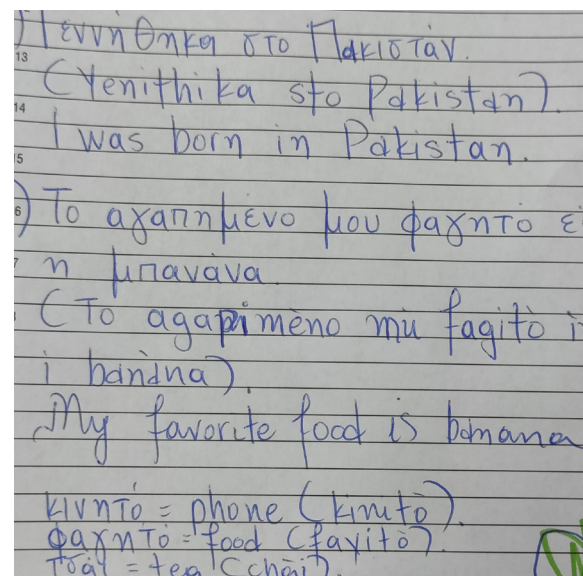 Γεννήθηκα στο Πακιστάν.
13
(Yenithika sto Pakistan).
14
I was born in Pakistan.
15
6) Το αγαπημένο μου φαγητό ε
7 η μπανάνα
(To agapimèno mù fagitò i
i banàna).
My favorite food is banana
κινητό = phone (kinitò).
φαγητό = food (fayitò).
τσάι = tea (chài).